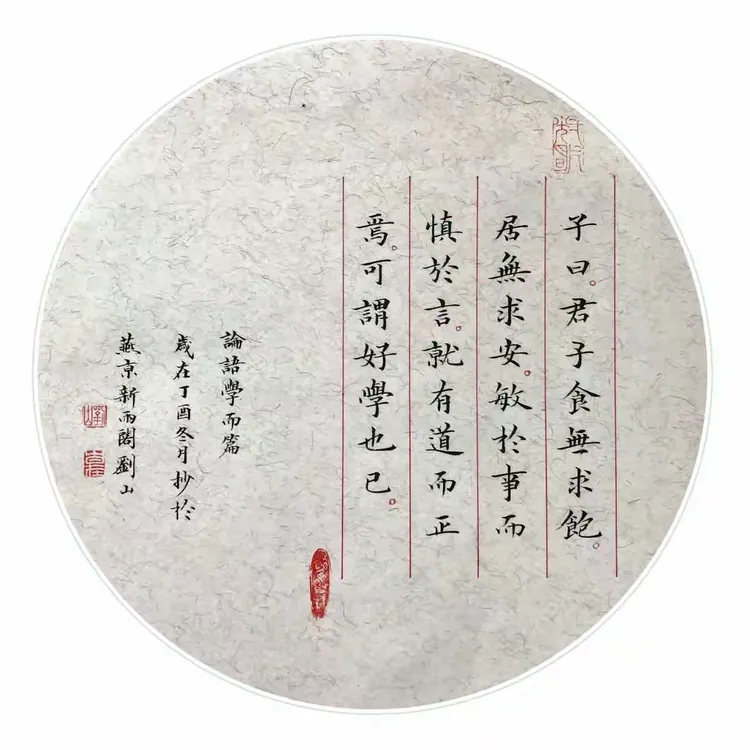 子曰。君子食無求飽。
居無求安。敏於事而
慎於言。就有道而正
焉。可謂好學也已。
論語學而篇
歲在丁酉冬月抄於
燕京新雨閣劉山